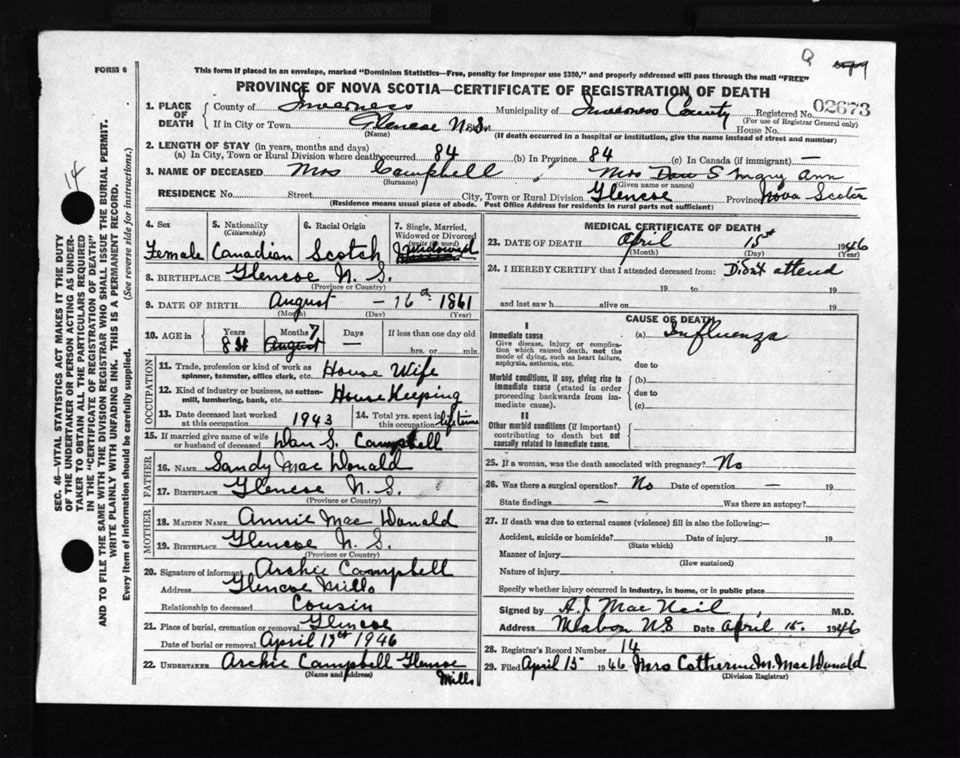 FORM 6
This form if placed in an envelope, marked "Dominion Statistics—Free, penalty for improper use $300," and properly addressed will pass through the mail "FREE"
PROVINCE OF NOVA SCOTIA—CERTIFICATE OF REGISTRATION OF DEATH
1. PLACE OF DEATH { County of Inverness Municipality of Inverness County Registered No. 02673
(For use of Registrar General only)
If in City or Town Glencoe N.S. House No.
(Name) (If death occurred in a hospital or institution, give the name instead of street and number)
2. LENGTH OF STAY (in years, months and days)
(a) In City, Town or Rural Division where death occurred 84 (b) In Province 84 (c) In Canada (if immigrant) —
3. NAME OF DECEASED Mrs Campbell Mrs Dan S Mary Ann
(Surname) (Given name or names)
RESIDENCE No. Street City, Town or Rural Division Glencoe Province Nova Scotia
(Residence means usual place of abode. Post Office Address for residents in rural parts not sufficient)
SEC. 46—VITAL STATISTICS ACT MAKES IT THE DUTY
OF THE UNDERTAKER OR PERSON ACTING AS UNDER-
TAKER TO OBTAIN ALL THE PARTICULARS REQUIRED
IN THE "CERTIFICATE OF REGISTRATION OF DEATH"
AND TO FILE THE SAME WITH THE DIVISION REGISTRAR WHO SHALL ISSUE THE BURIAL PERMIT.
WRITE PLAINLY WITH UNFADING INK. THIS IS A PERMANENT RECORD.
Every item of information should be carefully supplied. (See reverse side for instructions.)
14
4. Sex 5. Nationality 6. Racial Origin 7. Single, Married,
(Citizenship) Widowed or Divorced
(write the word)
Female Canadian Scotch Widowed
8. BIRTHPLACE Glencoe N. S.
(Province or Country)
9. DATE OF BIRTH August — 16th 1861
(Month) (Day) (Year)
10. AGE in Years Months 7 Days If less than one day old
84 August — hrs. or min.
OCCUPATION
11. Trade, profession or kind of work as House Wife
spinner, teamster, office clerk, etc.
12. Kind of industry or business, as cotton- House Keeping
mill, lumbering, bank, etc.
13. Date deceased last worked 1943 14. Total yrs. spent in life time
at this occupation this occupation
15. If married give name of wife Dan S. Campbell
or husband of deceased
FATHER
16. NAME Sandy Mac Donald
17. BIRTHPLACE Glencoe N. S.
(Province or Country)
MOTHER
18. MAIDEN NAME Annie Mac Donald
19. BIRTHPLACE Glencoe N. S.
(Province or Country)
20. Signature of informant Archie Campbell
Address Glencoe Mills
Relationship to deceased Cousin
21. Place of burial, cremation or removal Glencoe
Date of burial or removal April 17th 1946
22. UNDERTAKER Archie Campbell Glencoe
(Name and address) Mills
MEDICAL CERTIFICATE OF DEATH
23. DATE OF DEATH April 15th 1946
(Month) (Day) (Year)
24. I HEREBY CERTIFY that I attended deceased from: Didn't attend
19 to 19
and last saw h alive on 19
CAUSE OF DEATH
I
Immediate cause (a) Influenza
Give disease, injury or complica-
tion which caused death, not the
mode of dying, such as heart failure,
asphyxia, asthenia, etc. due to
Morbid conditions, if any, giving rise to (b)
immediate cause (stated in order due to
proceeding backwards from im-
mediate cause). (c)
II
Other morbid conditions (if important)
contributing to death but not
causally related to immediate cause.
25. If a woman, was the death associated with pregnancy? No
26. Was there a surgical operation? No Date of operation — 19
State findings — Was there an autopsy?
27. If death was due to external causes (violence) fill in also the following:—
Accident, suicide or homicide? Date of injury 19
(State which)
Manner of injury
(How sustained)
Nature of injury
Specify whether injury occurred in industry, in home, or in public place
Signed by A.J. Mac Neil M.D.
Address Mabou N S Date April 15. 1946
28. Registrar's Record Number 14
29. Filed April 15 1946 Mrs Catherine M. Mac Donald
(Division Registrar)